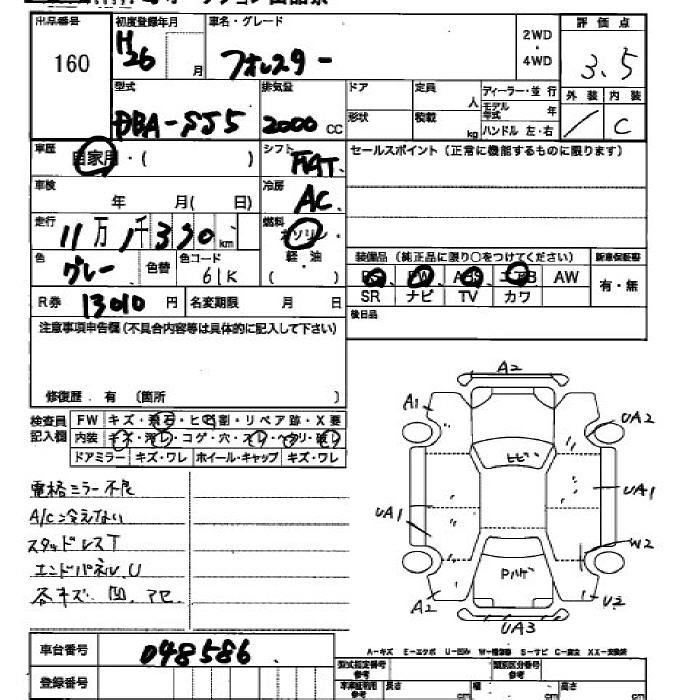 出品番号
160
初度登録年月
H26
月
車名・グレード
フォレスター
2WD
・
4WD
評価点
3.5
外装 内装
/ C
型式
DBA-SJ5
排気量
2000 CC
ドア
定員
人
形状
積載
kg
ディーラー・並行
モデル年式
年
ハンドル 左・右
車歴
自家用・( )
シフト
FAT
セールスポイント(正常に機能するものに限ります)
車検
年 月( 日)
冷房
AC
走行
11万1千330km
燃料
ガソリン・
軽・油
( )
色
グレー
色替
色コード
61K
装備品(純正品に限り○をつけてください)
新車保証書
PS PW ABS エアB AW
有・無
SR ナビ TV カワ
R券 13010 円
名変期限 月 日
後日品
注意事項申告欄(不具合内容等は具体的に記入して下さい)
修復歴・有 (箇所 )
検査員
記入欄
FW キズ・飛石・ヒビ割・リペア跡・X要
内装 キズ・汚レ・コゲ・穴・スレ・ヘタリ・破レ
ドアミラー キズ・ワレ ホイール・キャップ キズ・ワレ
電格ミラー不良
A/C冷えない
スタッドレスT
エンドパネル、U
各キズ、凹、アセ、
A2
A1
UA2
ヒビ
UA1
UA1
W2
Pハゲ
A2
U2
UA3
A-キズ E-エクボ U-凹み W-補修跡 S-サビ C-腐食 XX-交換済
車台番号
048586
登録番号
型式指定番号
参考
類別区分番号
参考
車庫証明用
参考
長さ cm
幅 cm
高さ cm